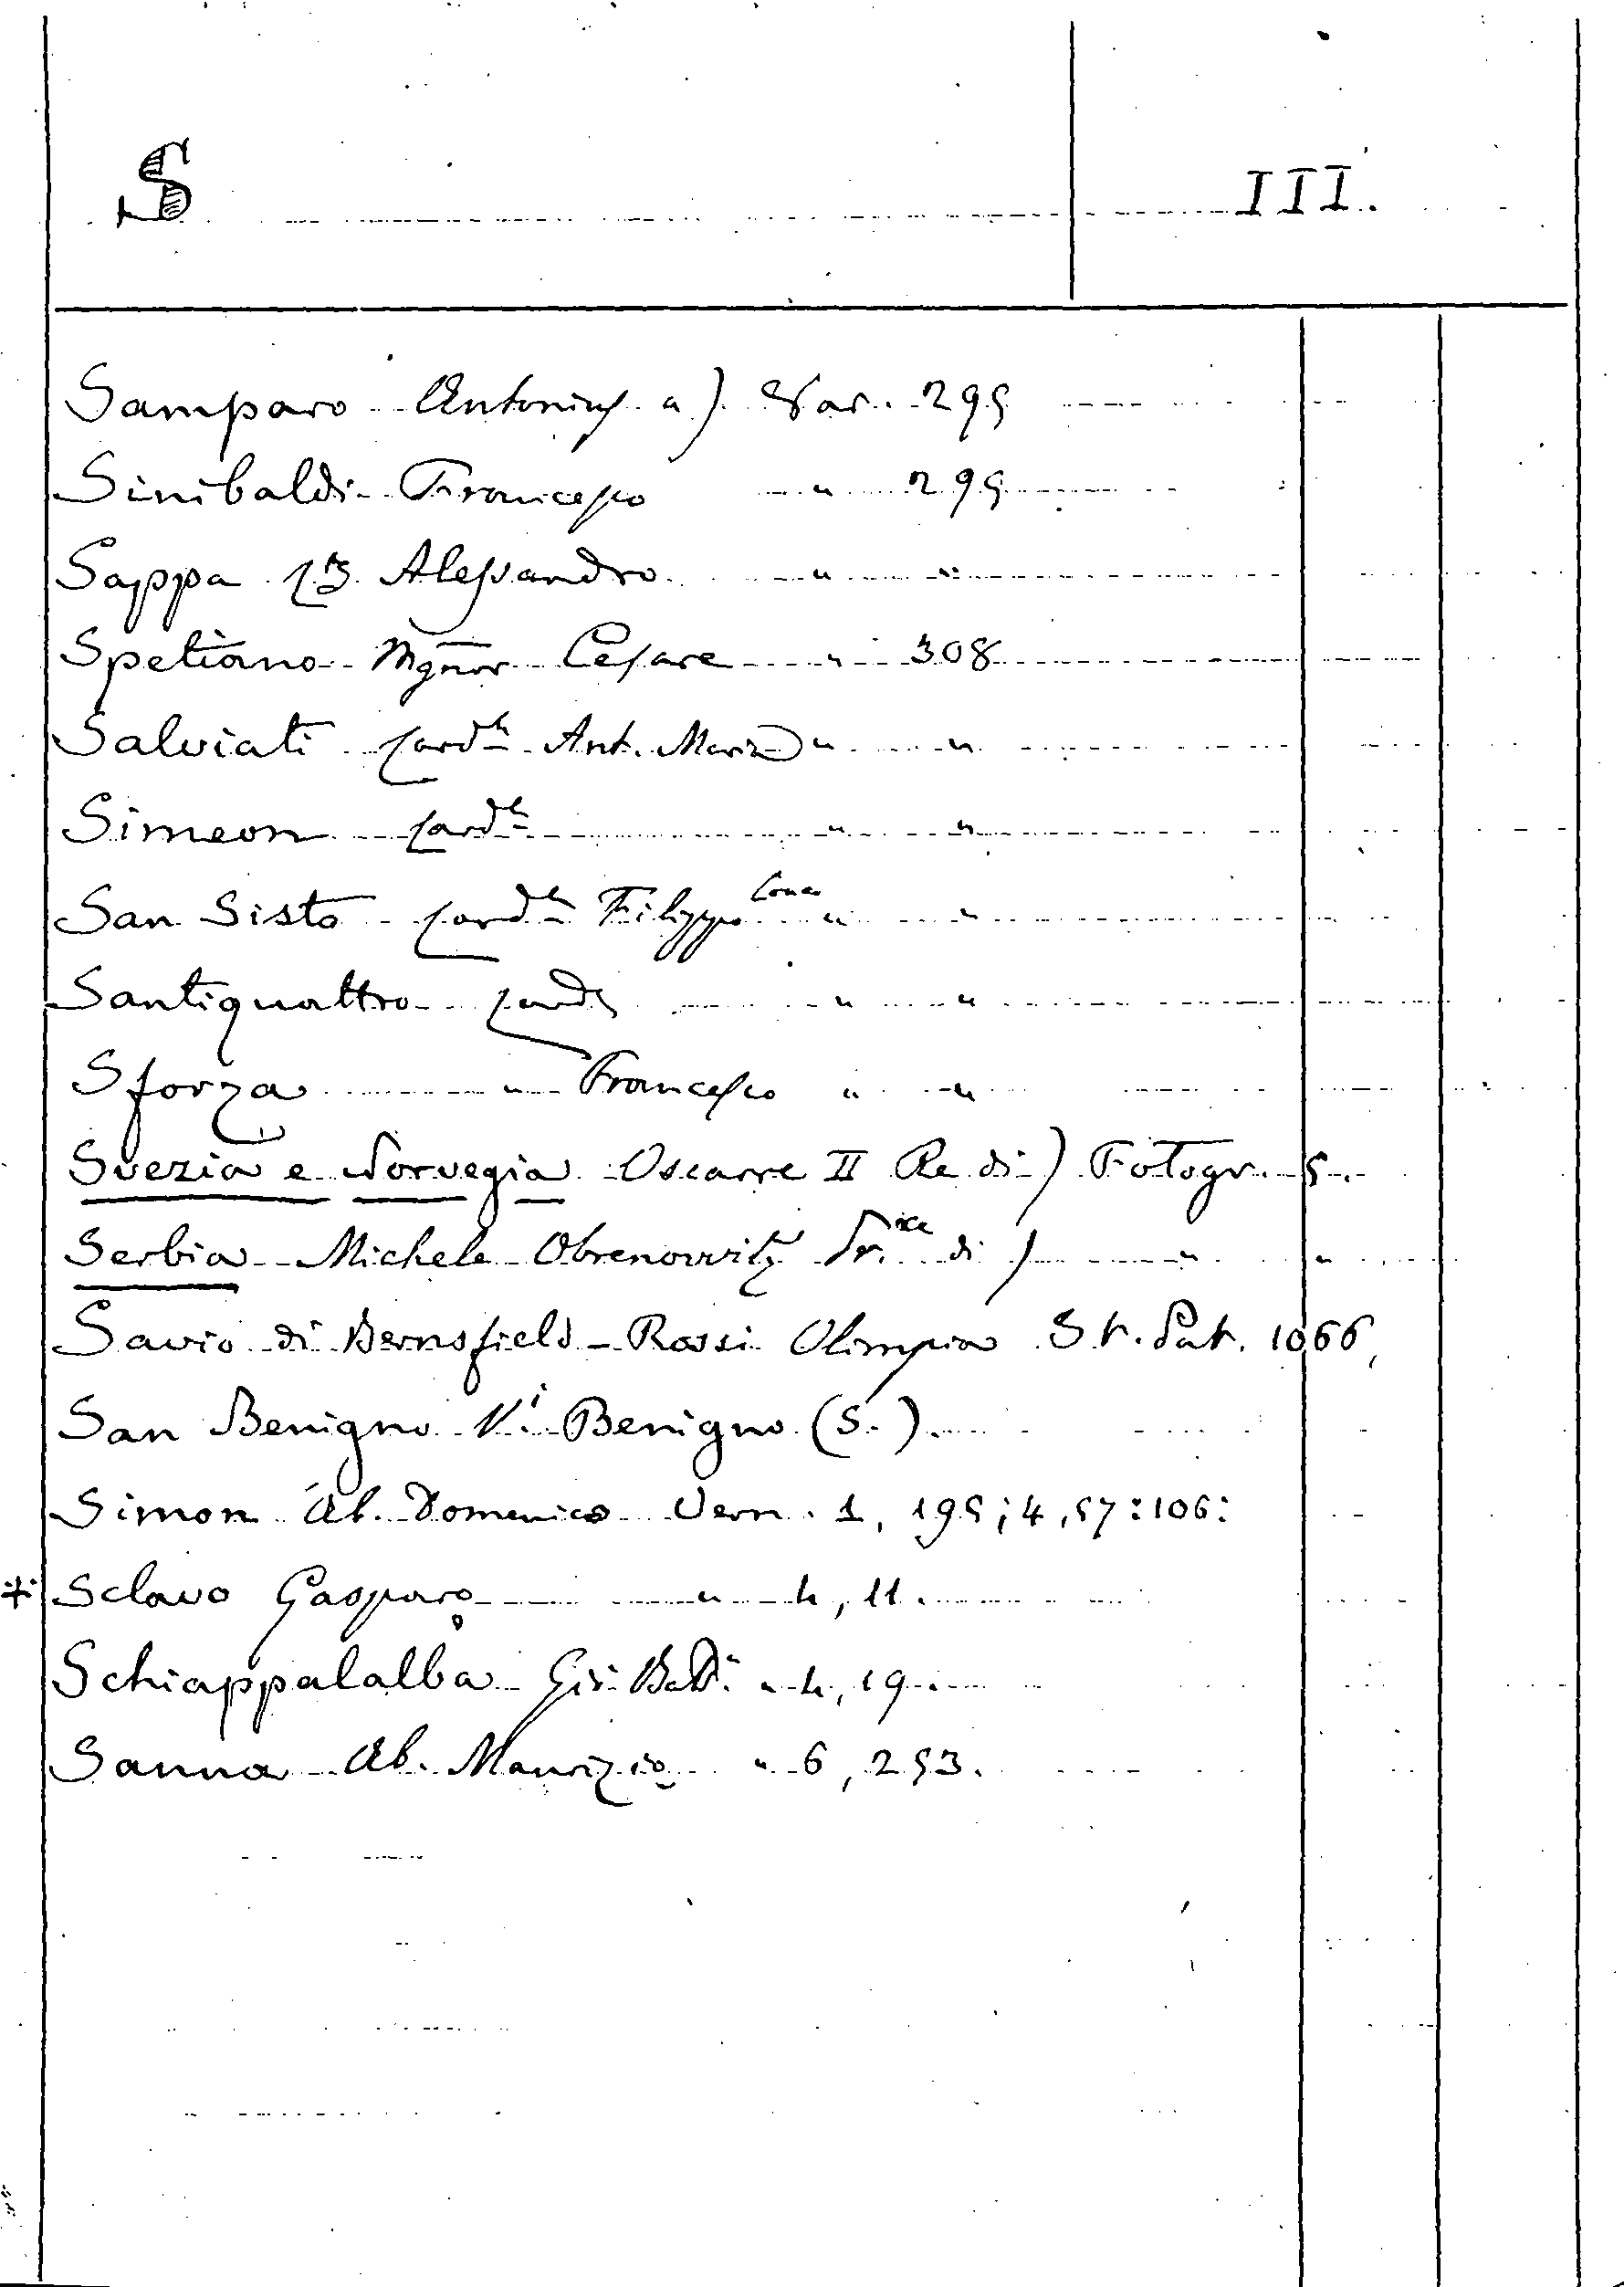 S III.
Samparo Antonius a) Var. 295
Sinibaldi Francesco " 295
Sappa Alessandro " "
Spetiano Mgnor Cesare " 308
Salviati Cardle Ant. Maria " "
Simeon Cardle " "
San Sisto Cardle Filippo " "
Santiquattro Cardl " "
Sforza " Francesco " "
Svezia e Norvegia Oscarre II Re di) Fotogr. 5.
Serbia Michele Obrenowitz Pr.ce di) " "
Savio di Bernsfield - Rossi Olimpia St. Pat. 1066,
San Benigno Vi Benigno (S.).
Simon Ab. Domenico Vern. 1, 195; 4, 57: 106:
* Sclavo Gasparo " 4, 11.
Schiappalalba Gio Batta " 4, 19.
Sanna Ab. Maurizio " 6, 253.